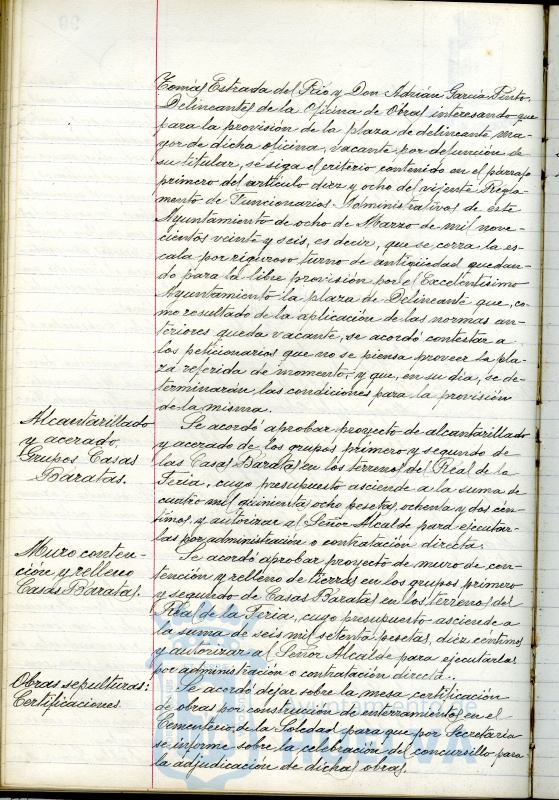 Tomás Estrada del Río y Don Adrián García Pinto,
Delineantes de la Oficina de Obras interesando que
para la provisión de la plaza de delineante ma-
yor de dicha oficina, vacante por defunción de
su titular, se siga el criterio contenido en el párrafo
primero del artículo diez y ocho del vijente Regla-
mento de Funcionarios Administrativos de este
Ayuntamiento de ocho de Marzo de mil nove-
cientos veinte y seis, es decir, que se corra la es-
cala por riguroso turno de antigüedad quedan-
do para la libre provisión por el Excelentísimo
Ayuntamiento la plaza de Delineante que, co-
mo resultado de la aplicación de las normas an-
teriores queda vacante, se acordó contestar a
los peticionarios que no se piensa proveer la pla-
za referida de momento, y que, en su día, se de-
terminarán las condiciones para la provisión
de la misma.
Alcantarillado
y acerado,
Grupos Casas
Baratas.
Se acordó aprobar proyecto de alcantarillado
y acerado de los grupos primero y segundo de
las Casas Baratas en los terrenos del Real de la
Feria, cuyo presupuesto asciende a la suma de
cuatro mil quinientas ocho pesetas, ochenta y dos cén-
timos, y autorizar al Señor Alcalde para ejecutar-
las por administración o contratación directa.
Muro conten-
ción y relleno
Casas Baratas.
Se acordó aprobar proyecto de muro de con-
tención y relleno de tierras en los grupos primero
y segundo de Casas Baratas en los terrenos del
Real de la Feria, cuyo presupuesto asciende a
la suma de seis mil setenta pesetas, diez céntimos
y autorizar al Señor Alcalde para ejecutarlas
por administración o contratación directa.
Obras sepulturas:
Certificaciones
Se acordó dejar sobre la mesa certificación
de obras por construción de enterramientos en el
Cementerio de la Soledad para que por Secretaría
se informe sobre la celebración del concursillo para
la adjudicación de dichas obras.